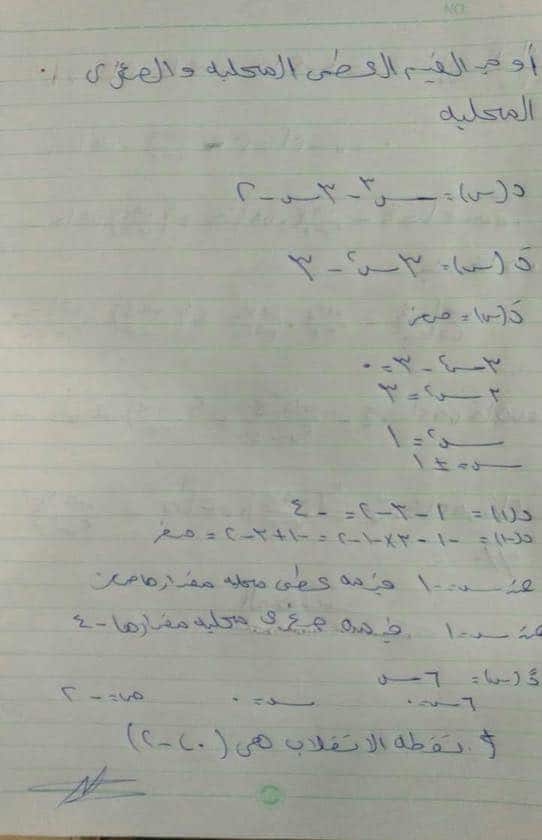 NO
أوجد القيم العظمى المحليه والصغرى
المحليه
د(س) = س٣ - ٣س - ٢
دَ(س) = ٣س٢ - ٣
دَ(س) = صفر
٣س٢ - ٣ = ٠
٣س٢ = ٣
س٢ = ١
س = ± ١
د(١) = ١ - ٣ - ٢ = - ٤
د(-١) = -١ - ٣×-١ - ٢ = -١ + ٣ - ٢ = صفر
عند س = -١ قيمه عظمى محليه مقدارها صفر
عند س = ١ قيمه صغرى محليه مقدارها - ٤
دً(س) = ٦س
٦س = ٠ س = ٠ ص = - ٢
نقطه الانقلاب هى (٠، -٢)